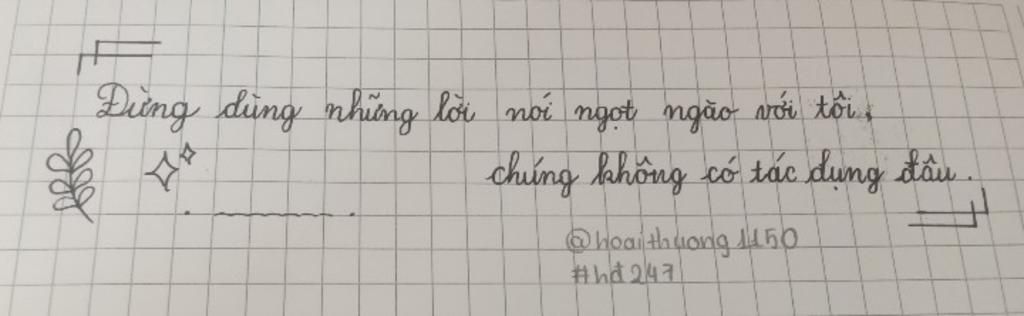 Đừng dùng những lời nói ngọt ngào với tôi,
chúng không có tác dụng đâu.
@hoaithuong1150
#hđ247